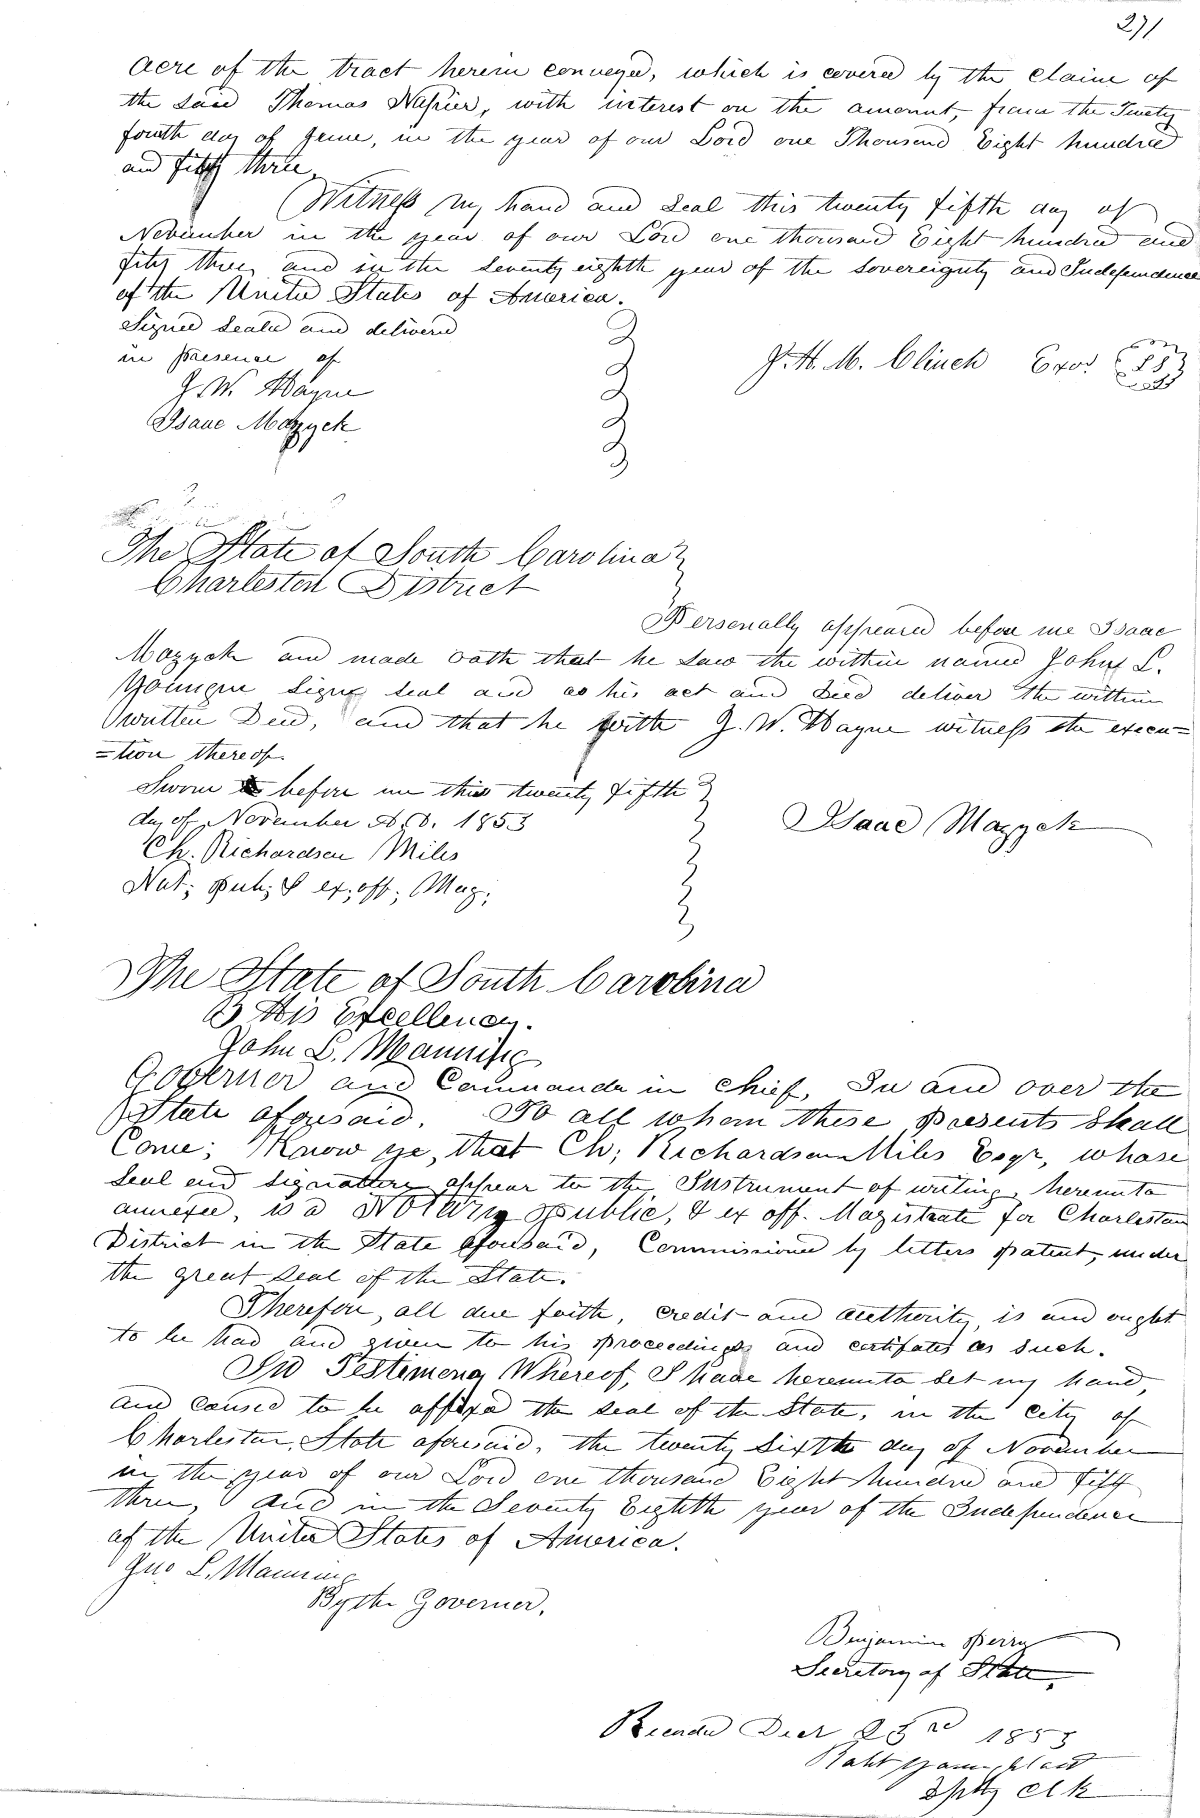 271
acre of the tract herein conveyed, which is covered by the claim of
the said Thomas Napier, with interest on the amount, from the Twety
fourth day of June, in the year of our Lord one Thousand Eight hundred
and fifty three,
Witness my hand and seal this twenty fifth day of
November in the year of our Lord one thousand Eight hundred and
fifty three, and in the seventy eighth year of the sovereignty and Independence
of the United States of America.
Signed sealed and delivered
in presence of
J. H. M. Clinch Exor
I. W. Hayne
Isaac Mazyck
The State of South Carolina
Charleston District
Personally appeared before me Isaac
Mazyck and made oath that he saw the within named John L.
sign seal and as his act and Deed deliver the within
written Deed, and that he with I. W. Hayne witness the execu=
=tion thereof.
Sworn to before me this twenty fifth
day of November A.D. 1853
Isaac Mazyck
Ch. Richardson Miles
Not; pub; & ex; off; Mag;
The State of South Carolina
By His Excellency.
John L. Manning
Governor and Commander in chief, In and over the
State aforesaid. To all whom these presents shall
Come; Know ye, that Ch; Richardson Miles Esqr, whose
seal and signature appear to the Instrument of writing, hereunto
annexed, is a Notary public, & ex off. Magistrate for Charleston
District in the State aforesaid, Commissioned by letters patent, under
the great seal of the State.
Therefore, all due faith, credit and authority, is and ought
to be had and given to his proceedings and certifates as such.
In Testimony Whereof, I have hereunto set my hand,
and caused to be affixed the seal of the State, in the city of
Charleston, State aforesaid, the twenty Sixth day of November
in the year of our Lord one thousand Eight hundred and fifty
three, and in the Seventy Eighth year of the Independence
of the United States of America.
Jno L. Manning
By the Governor.
Benjamin Perry
Secretary of State.
Recorded Decr 23rd 1853
Robt Youngblood
Dpty Clk